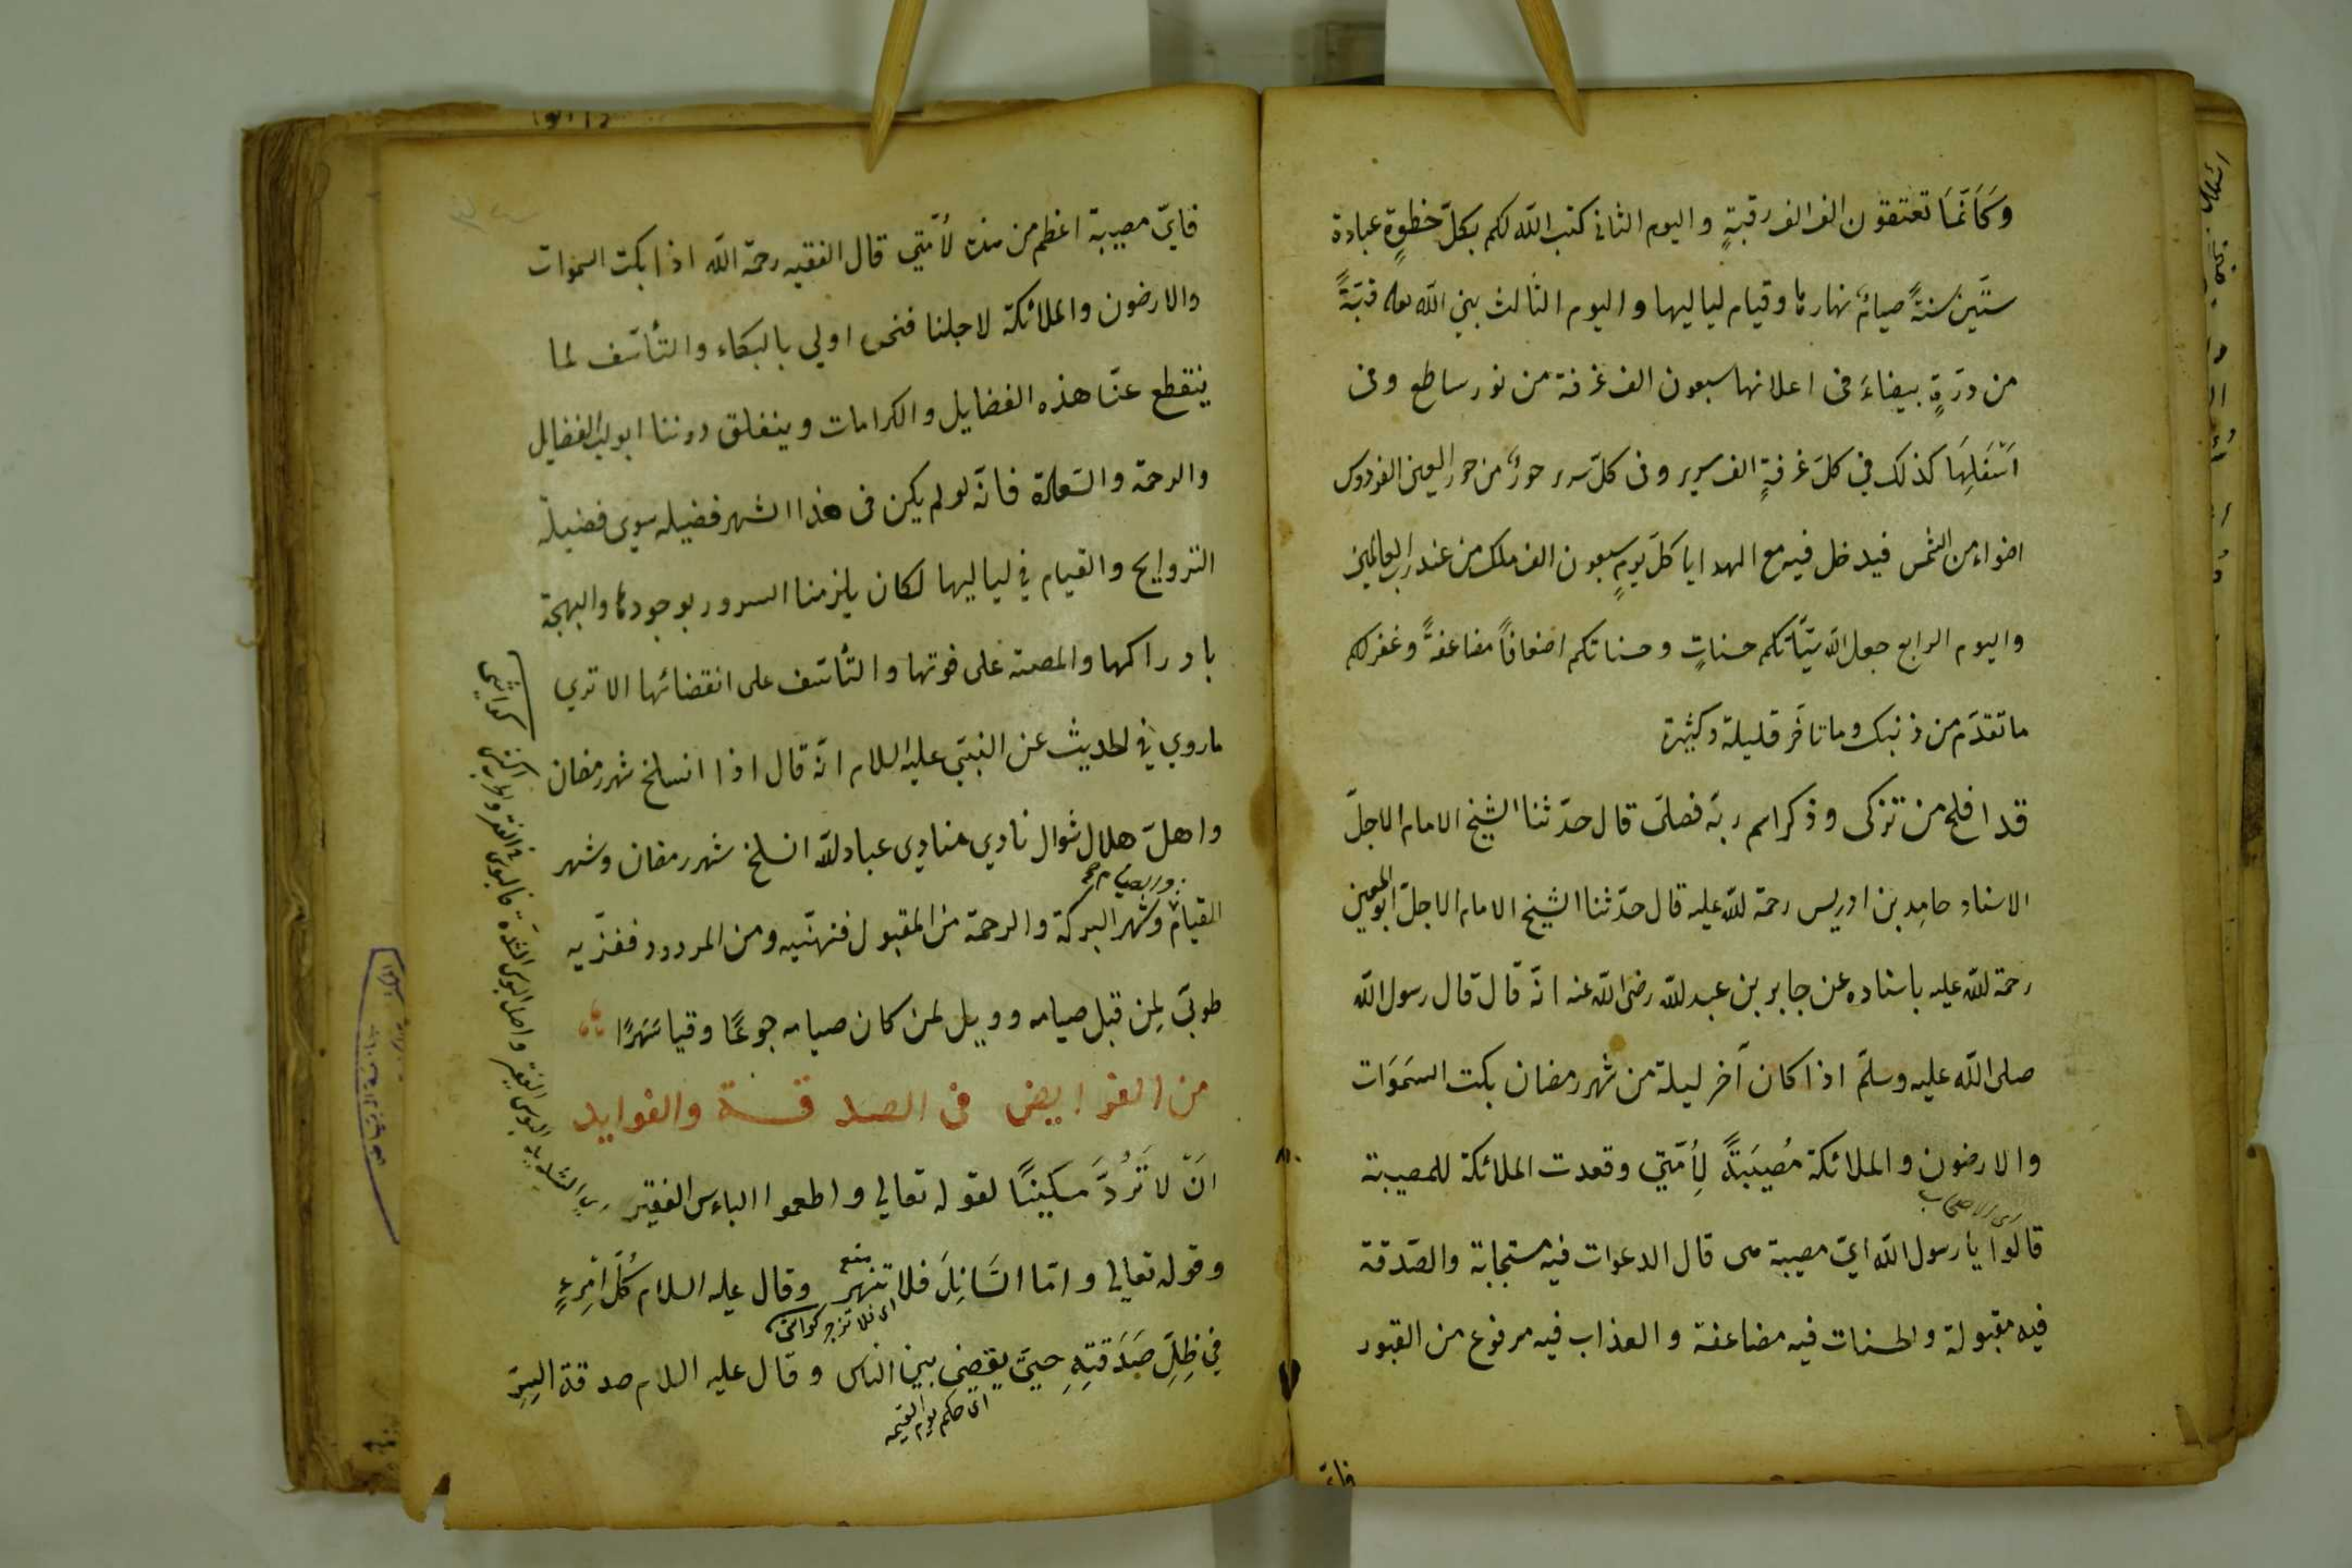 وَكَاَنَّمَا تعتقون الف الف رقبةٍ واليوم الثانى كتب اللّه لكم بكلّ خطوةٍ عبادة
ستّين سنةً صيامُ نهارها وقيام لياليها واليوم الثالث بنى اللّه قبّةً
من درّةٍ بيضاءَ فى اعلانها سبعون الف غرفة من نور ساطع وفى
اَسْفَلِهَا كذلك في كلّ غرفةٍ الف سرير وفى كلّ سرير حورٌ من حور العين الفردوس
اضواء من الشمس فيدخل فيه مع الهدايا كلّ يومٍ سبعون الف ملك من عند رب العالمين
واليوم الرابع جعل اللّه سيّأتكم حسناتٍ وحسناتكم اضعافاً مضاعفةً وغفر لكم
ما تقدّم من ذنبك وما تأخّر قليلة وكثيرة
قد افلح من تزكى وذكر اسم ربّه فصلى قال حدّثنا الشيخ الامام الاجلّ
الاستاد حامد بن ادريس رحمة للّه عليه قال حدّثنا الشيخ الامام الاجلّ ابو المعين
رحمة للّه عليه باسناده عن جابر بن عبد للّه رضى اللّه عنه انّه قال قال رسول اللّه
صلى اللّه عليه وسلّم اذا كان آخر ليلة من شهر رمضان بكت السمَوَات
والارضون والملائكة مُصيبَةً لِأُمّتِي وقعدت الملائكة للمصيبة
اى الاصحاب
قالوا يا رسول اللّه ايّ مصيبة هى قال الدعوات فيه مستجابة والصّدقة
فيه مقبولة والحسنات فيه مضاعفة والعذاب فيه مرفوع من القبور
فايّ
فايّ مصيبة اعظم من هذه لأمّتي قال الفقيه رحمة اللّه اذا بكت السموات
والارضون والملائكة لاجلنا فنحن اولي بالبكاء والتأسّف لما
ينقطع عنّا هذه الفضايل والكرامات وينغلق دوننا ابواب الفضايل
والرحمة والسّعادة فانّه لو لم يكن فى هذا الشهر فضيله سوى فضيلة
التروايح والقيام في لياليها لكان يلزمنا السرور بوجودها والبهجة
بادراكها والمصيبة على فوتها والتأسّف على انقضائها الا تري
ما روي في الحديث عن النبيّ عليه السلام انّه قال اذا انسلخ شهر رمضان
واهلّ هلال شوال نادي منادي عباد للّه انسلخ شهر رمضان وشهر
القيام وشهر البركة والرحمة من المقبول فنهنّيه ومن المردود فنعزّيه
طوبىّ لِمن قبل صيامه وويل لمن كان صيامه جوعًا وقيا سَهَرًا
من الفوايض فى الصدقة والفوايد
اَنّ لاَ تَرُدَّ مسكينًا لقوله تعالي واطعموا الباءس الفقير
وقوله تعالي وامّا السّائِلَ فلا تنهر وقال عليه السلام كُلّ امْرِءٍ
منع
اى فلا تزجر كواشى
في ظِلِّ صَدَقتِهِ حيىّ يقضى بين الناس وقال عليه السلام صدقة السِرّ
اى حكم يوم القيمه